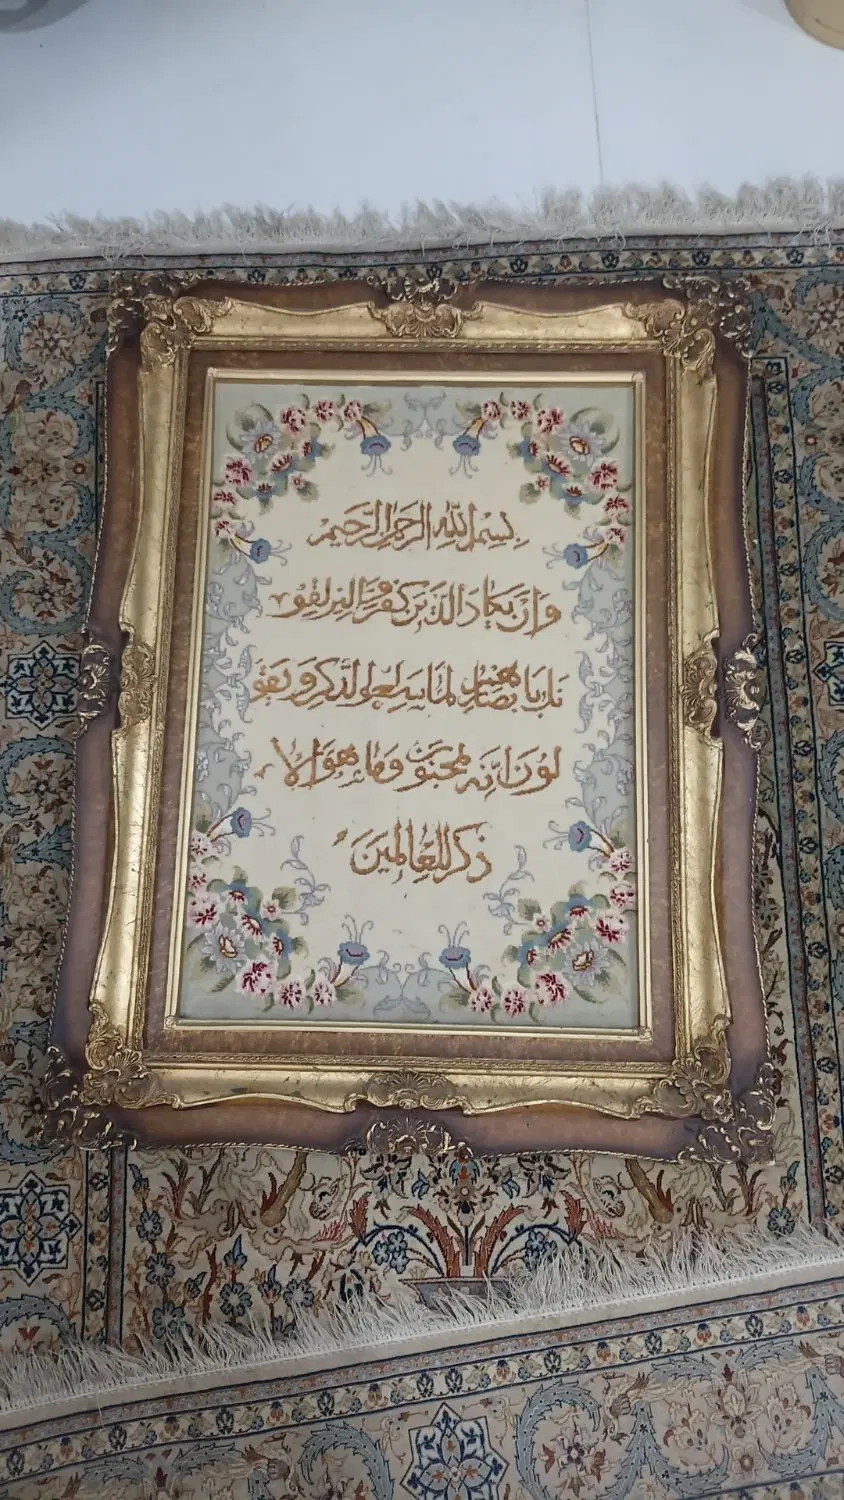 بسم الله الرحمن الرحيم
وَاِنْ يَكادُ الَّذينَ كَفَرُوا لَيُزْلِقُو
نَكَ بِاَبْصارِهِمْ لَمّا سَمِعُوا الذِّكْرَ وَيَقُو
لُونَ اِنَّهُ لَمَجْنُونٌ وَما هُوَ اِلّا
ذِكْرٌ لِلْعالَمينَ